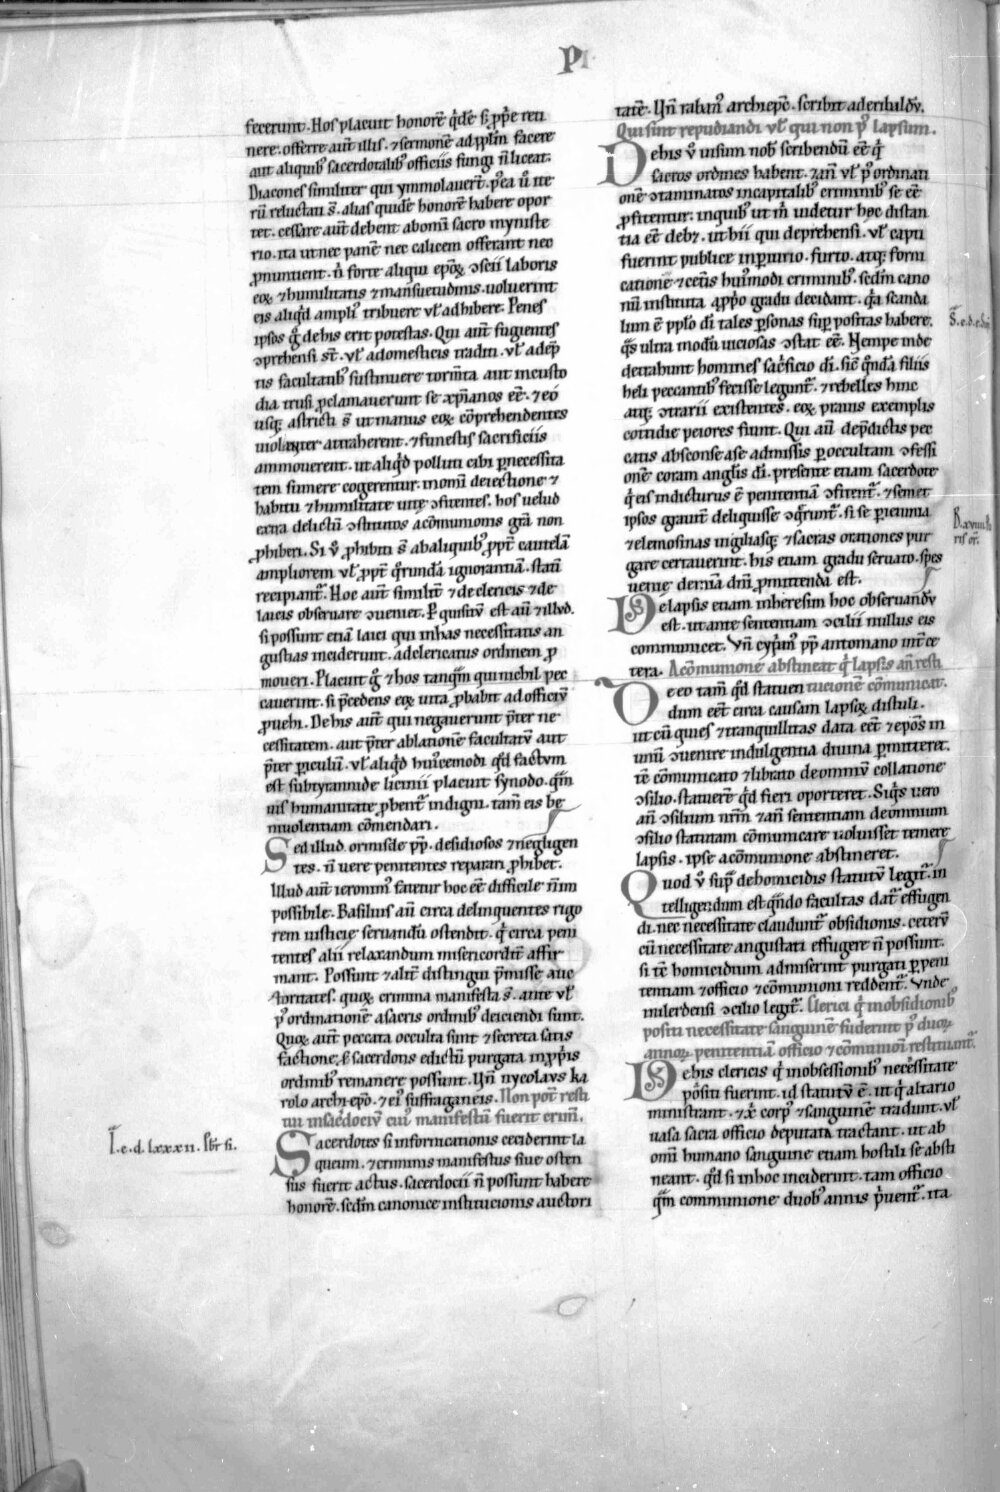 P
fecerunt. Hos placuit honorē q̇dē si ꝓp̄e reti
nere. offerre aut̄ illis. ⁊ sermonē ad pplm̄ facere
aut aliquib; sacerdotalib; officiis fungi n̄ liceat.
Diacones similiter qui ymmolauert̄. p̄ea ů ite
rū reluctati s̄. alias quidē honorē habere opor
tet. cessare aut̄ debent ab omī sacro myniste
rio. ita ut nec panē nec calicem offerant nec
ꝓnuntient. n̄ forte aliqui ep̄oꝝ ↄscii laboris
eoꝝ ⁊ humilitatis ⁊ mansuetudinis. uoluerint
eis aliq̇d ampli᷒ tribuere ul̄ adhibere. Penes
ipsos g̊ de his erit potestas. Qui aut̄ fugientes
ↄprehensi st̄. ul̄ a domesticis traditi. ul̄ adēp
tis facultatib; sustinuere torm̄ta aut in custo
dia trusi ꝓclamauerunt se xp̄ianos eē. ⁊ eo
usq; astricti s̄ ut manus eoꝝ cōprehendentes
uiolenter attraherent. ⁊ funestis sacrificiis
ammouerent. ut aliq̇d polluti cibi ꝑ necessita
tem sumere cogerentur. in omī deiectione ⁊
habitu ⁊ humilitate uite ↄfitentes. hos uelud
extra delictū ↄstitutos a cōmunionis gr̄a non
ꝓhiberi. Si ů ꝓhibiti s̄ ab aliquib; ꝓpt̄ cautelā
ampliorem ul̄ ꝓpt̄ q̊rundā ignorantiā. statī
recipiant᷑. Hoc aut̄ similit̄ ⁊ de clericis ⁊ de
laicis obseruare ↄueniet. Perquisitū est aut̄ ⁊ illud.
si possunt etiā laici qui in has necessitatis an
gustias inciderunt. ad clericatus ordinem ꝓ
moueri. Placuit g̊ ⁊ hos tanqm̄ qui nichil pec
cauerint. si p̄cedens eoꝝ uita ꝓbabit̄ ad officiū
ꝓuehi. De his aut̄ qui negauerunt p̄ter ne
cessitatem. aut p̄ter ablationē facultatū aut
p̄ter ꝑiculū. ul̄ aliq̇d hui᷒cemodi qd̄ factum
est sub tyrannide licinii placuit synodo. qm̄
uis humanitate ꝓbent᷑ indigni. tam̄ eis be
niuolentiam cōmendari.
Sed illud. ormisde pp̄. desidiosos ⁊ negligen
tes. n̄ uere penitentes reparari ꝓhibet.
Illud aut̄ ieronim᷒ fatetur hoc eē difficile n̄ im
possibile. Basilius aū circa delinquentes rigo
rem iusticie seruandū ostendit. q̇ circa peni
tentes alii relaxandum misericordit̄ affir
mant. Possunt ⁊ alit̄ distingui p̄misse auc
toritates. quoꝝ crimina manifesta s̄. ante ul̄
p᷒ ordinationē a sacris ordinib; deiciendi sunt.
Quoꝝ aut̄ peccata occulta sunt ⁊ secreta satis
factione; scd̄m sacerdotis edictū purgata in ꝓp̄is
ordinib; remanere possunt. Vn̄ nycolaus ka
rolo archiep̄o. ⁊ ei᷒ suffraganeis. Non pot̄ resti
tui in sac̄dociū cui᷒ manifestū fuerit crim̄.
I. e. d. lxxxii. pbr̄ si.
Sacerdotes si in fornicationis ceciderint la
queum. ⁊ criminis manifestus siue osten
sus fuerit actus. sacerdocii n̄ possunt habere
honorē. scd̄m canonice institucionis auctori
tatē. Vn̄ raban᷒ archiep̄c. scribit ad eribaldū.
Qui sint repudiandi ul̄ qui non p᷒ lapsum.
De his ů uisum nob̄ scribendū eē q̇
sacros ordines habent. ⁊ an̄ ul̄ p᷒ ordinati
onē ↄtaminatos in capitalib; criminib; se eē
ꝓfitentur. in quib; ut m̄ uidetur hęc distan
tia eē deb;. ut hii qui deprehensi. ul̄ capti
fuerint publice in ꝑiurio. furto. atq; forni
catione ⁊ cet̄is hui᷒modi criminib;. scd̄m cano
nū instituta a ꝓp̊o gradu decidant. q̇a scanda
lum ē pplo dī tales ꝑsonas suꝑ positas habere.
S. e. d. e. dixi
q̊s ultra modū uiciosas ↄstat eē. Nempe inde
detrahunt homines sac̊ficio dī. sic̄ q̊ndā filiis
heli peccantib; fecisse legunt᷑. ⁊ rebelles hinc
atq; ↄtrarii existentes. eoꝝ prauis exemplis
cotidie peiores fiunt. Qui aū de p̄dictis pec
catis absconse a se admissis ꝑ occultam ↄfessi
onē coram angl̄is dī. presente etiam sacerdote
q̇ eis indicturus ē penitentiā ↄfitent᷑. ⁊ semet
ipsos grauit̄ deliquisse ↄq̊runt᷑. si se ꝑ ieiunia
⁊ elemosinas uigiliasq; ⁊ sacras orationes pur
gare certauerint. his etiam gradu seruato. spes
uenie de mīa dn̄i ꝓmittenda est.
De lapsis etiam in heresim hoc obseruandū
est. ut ante sententiam ↄcilii nullus eis
communicet. Vn̄ cyp̊an᷒ pp̄ antoniano int̄ ce
tera. A cōmunione abstineat q̇ lapsis an̄ resti
tucionē cōmunicat.
De eo tam̄ qd̄ statuen
dum eēt circa causam lapsoꝝ distuli.
ut cū quies ⁊ tranquillitas data eēt ⁊ ep̄os in
unū ↄuenire indulgentia diuina ꝑmitteret.
tē cōmunicato ⁊ librato de omniū collatione
ↄsilio. statuerē qd̄ fieri oporteret. Siq̇s uero
an̄ ↄsilium nr̄m ⁊ an̄ sententiam de omnium
ↄsilio statutam cōmunicare uoluisset temere
lapsis. ipse a cōmunione abstineret.
Quod ů sup̄ de homicidis statutū legit᷑. in
telligendum est q̄ndo facultas dat᷑ effugien
di. nec necessitate claudunt᷑ obsidionis. ceterū
cū necessitate angustati effugere n̄ possunt.
si tē homicidium admiserint purgati ꝑ peni
tentiam ⁊ officio ⁊ cōmunioni reddent᷑. Vnde
in ilerdensi ↄcilio legit᷑. Clerici q̇ in obsidionib;
positi necessitate sanguinē fuderint p᷒ duoꝝ
annoꝝ penitentiā officio ⁊ cōmunioī restituant᷑.
De his clericis q̇ in obsessionib; necessitate
positi fuerint. id statutū ē. ut q̇ altario
ministrant. ⁊ xp̄i corp᷒ ⁊ sanguinē tradunt. ul̄
uasa sacra officio deputata tractant. ut ab
omī humano sanguine etiam hostili se absti
neant. qd̄ si in hoc inciderint. tam officio
qm̄ communione duob; annis p̊uent᷑. ita